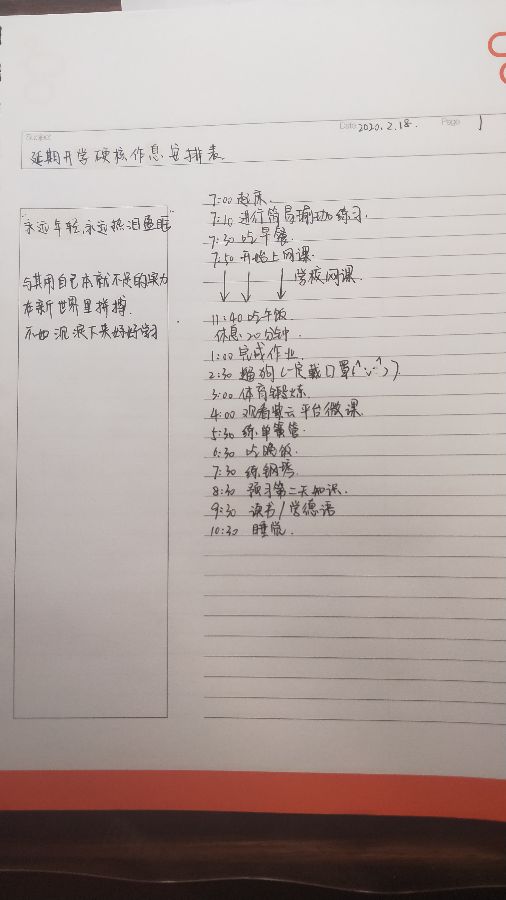 Subject
Date 2020.2.18.
Page 1
延期开学硬核作息安排表
永远年轻,永远热泪盈眶
与其用自己本就不足的果力
在新世界里拼搏.
不如沉浸下来好好学习
7:00 起床.
7:10 进行简易瑜伽练习.
7:30 吃早餐
7:50 开始上网课.
学校网课.
11:40 吃午饭
休息20分钟
1:00 完成作业.
2:30 遛狗(一定戴口罩(^v^))
3:00 体育锻炼
4:00 观看紫云平台微课.
5:30 练单簧管.
6:30 吃晚饭.
7:30 练钢琴.
8:30 预习第二天知识.
9:30 读书/学德语
10:30 睡觉.